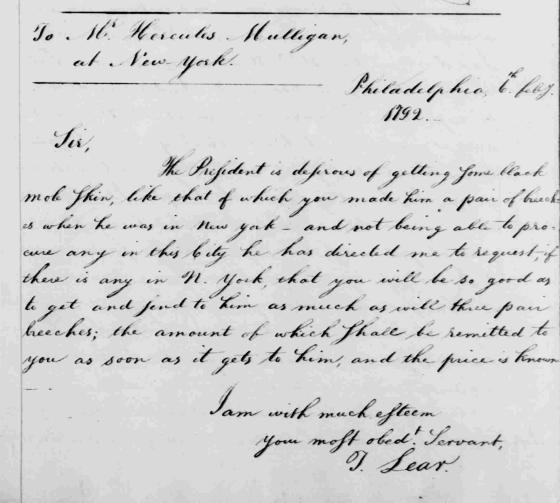 To Mr. Hercules Mulligan,
at New-York.
Philadelphia, 6th feby.
1792.
Sir,
The President is desirous of getting some black
mole skin, like that of which you made him a pair of breech
es when he was in New york – and not being able to pro-
cure any in this City he has directed me to request, if
there is any in N. York, that you will be so good as
to get and send to him as much as will three pair
breeches; the amount of which shall be remitted to
you as soon as it gets to him, and the price is known
I am with much esteem
your most obedt. Servant,
T. Lear.